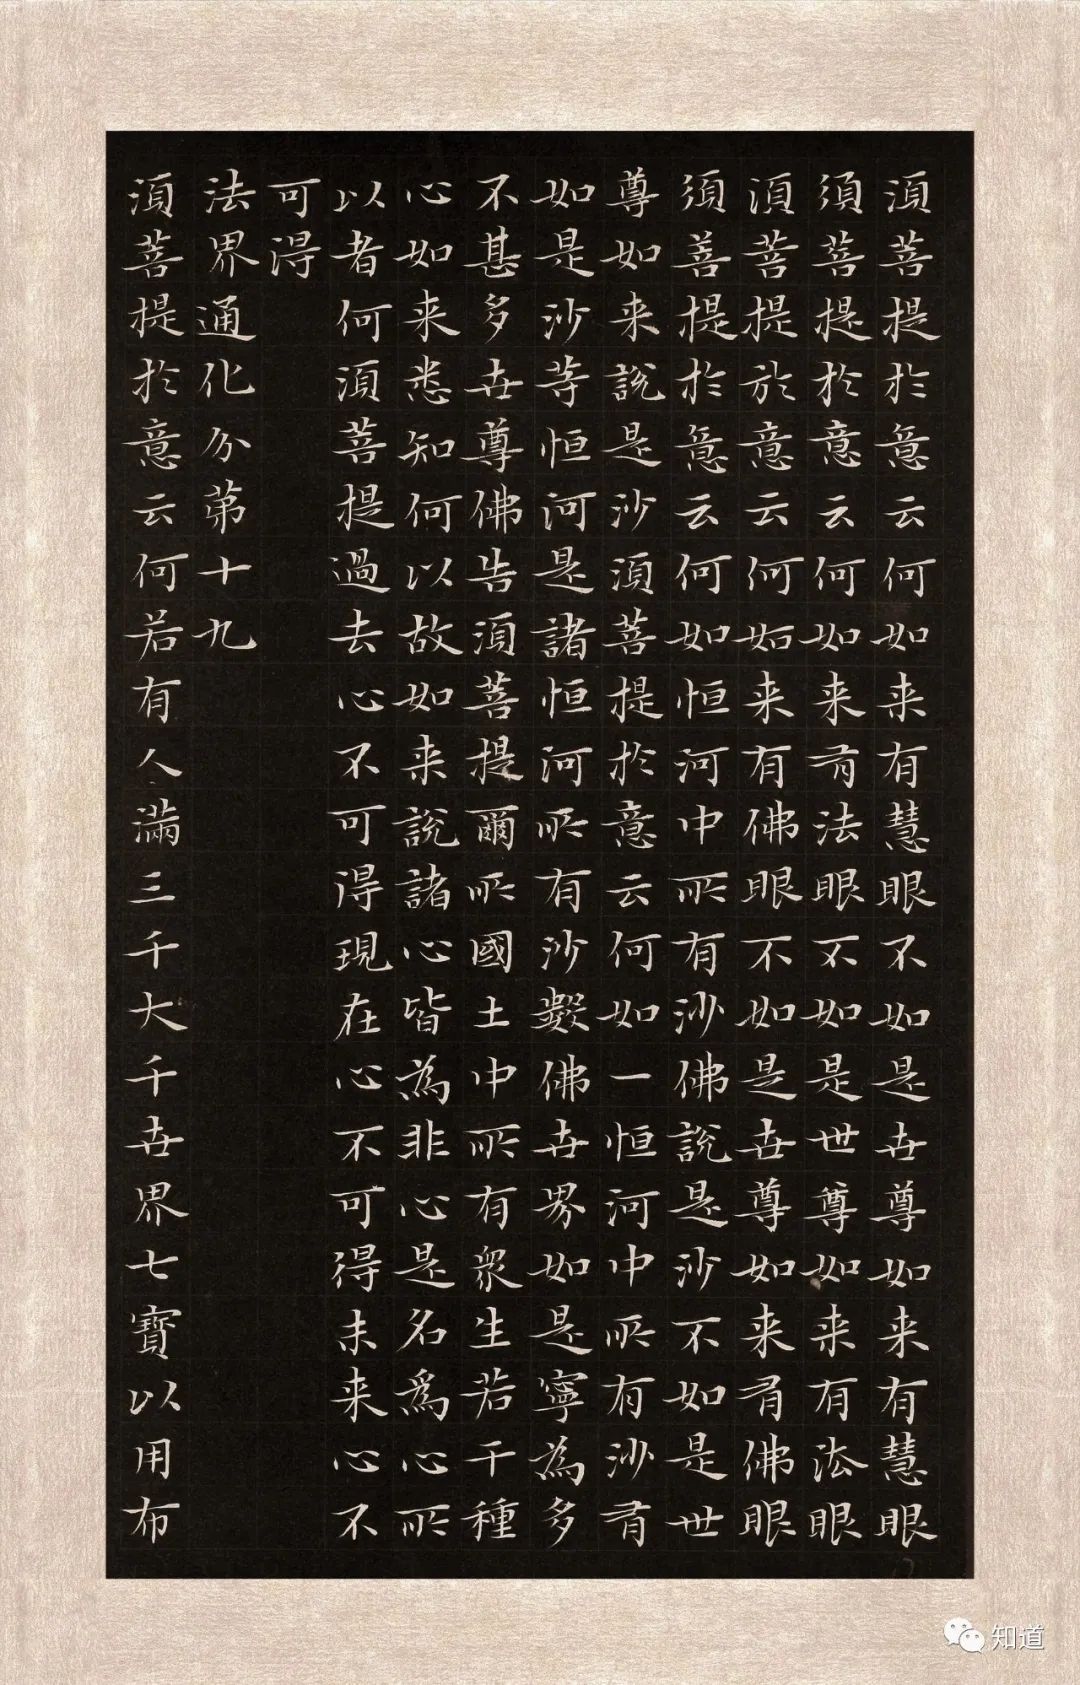 須菩提於意云何如来有慧眼不如是世尊如来有慧眼
須菩提於意云何如来有法眼不如是世尊如来有法眼
須菩提於意云何如来有佛眼不如是世尊如来有佛眼
須菩提於意云何如恒河中所有沙佛說是沙不如是世
尊如来說是沙須菩提於意云何如一恒河中所有沙有
如是沙等恒河是諸恒河所有沙數佛世界如是寧為多
不甚多世尊佛告須菩提爾所國土中所有衆生若干種
心如来悉知何以故如来說諸心皆為非心是名爲心所
以者何須菩提過去心不可得現在心不可得未来心不
可得
法界通化分第十九
須菩提於意云何若有人滿三千大千世界七寶以用布
知道